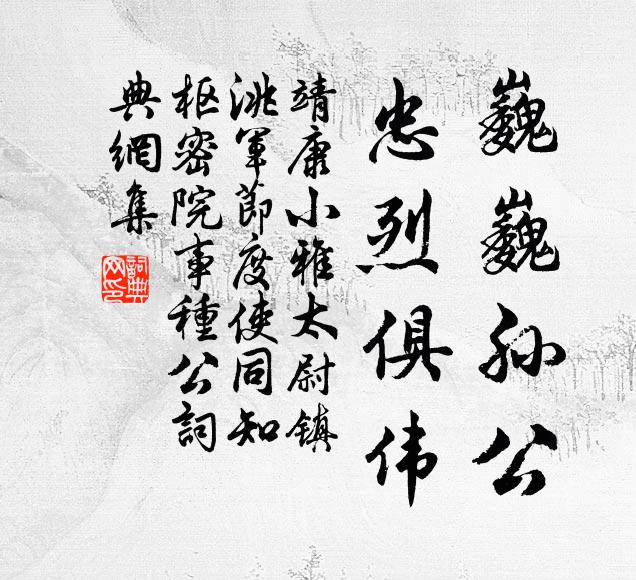 巍巍孙公
忠烈俱伟
靖康小雅太尉镇
洮军节度使同知
枢密院事种公词
典網集
詞典網印